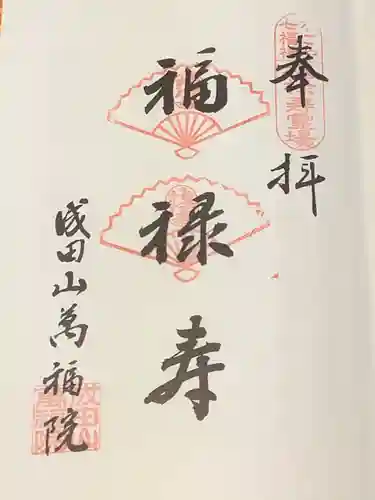 奉拝
福
禄
寿
成田山萬福院